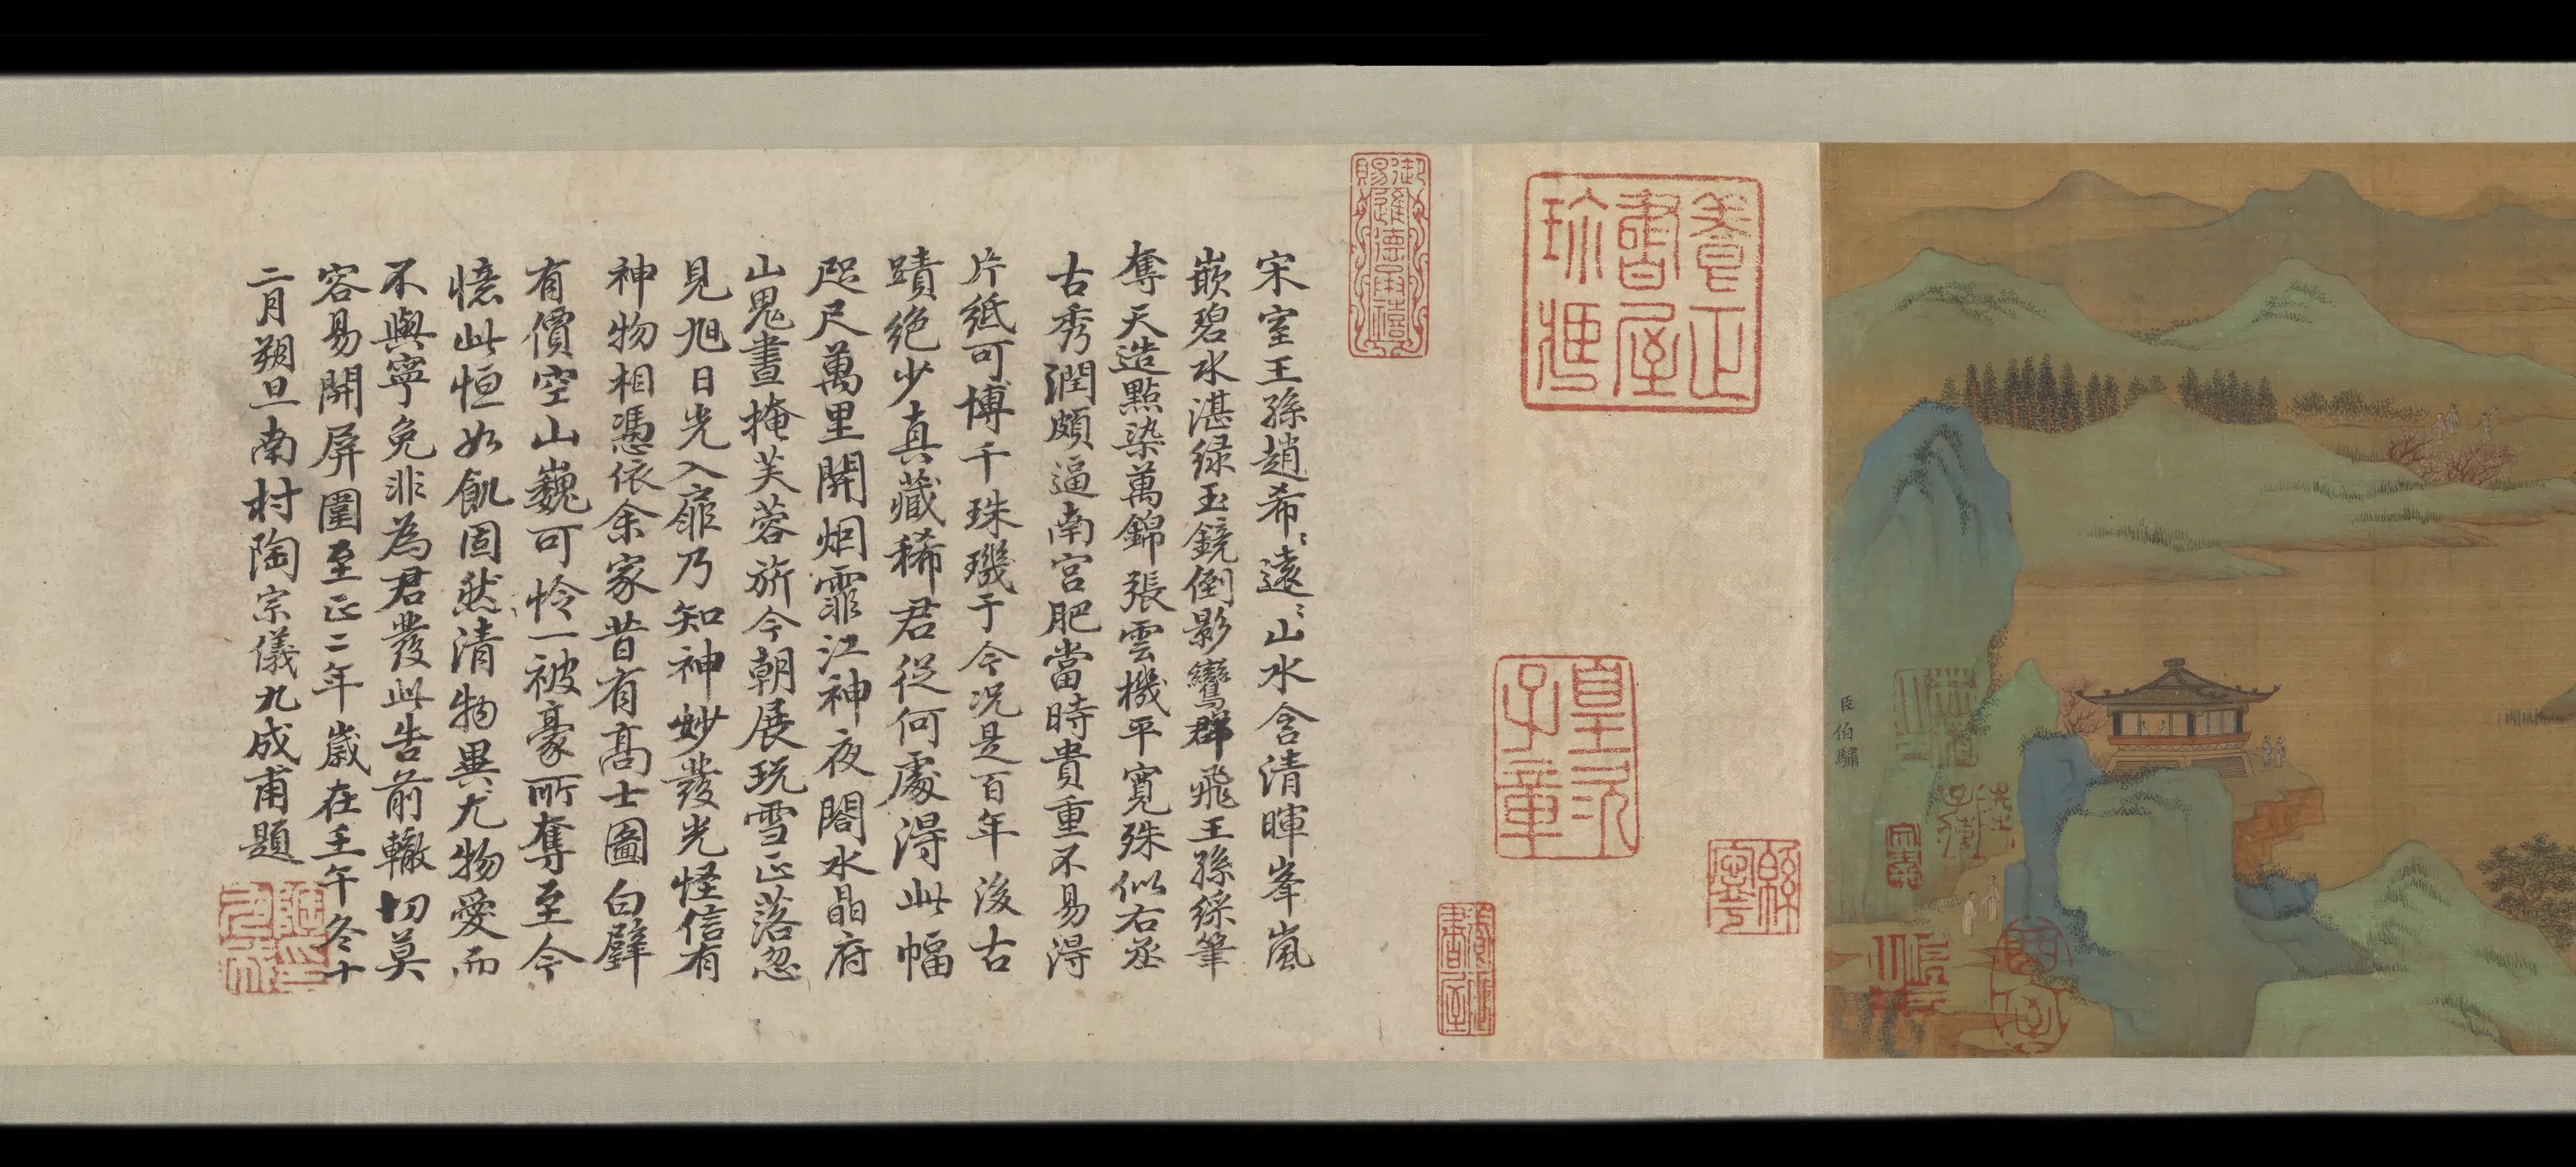 臣伯驌
養正
書屋
珍藏
皇次
子章
緜
寧
養正
書屋
宋室王孫趙希〻遠〻山水含清暉峯嵐
嵌碧水湛綠玉鏡倒影鸞群飛王孫綵筆
奪天造點染萬錦張雲機平寬殊似右丞
古秀潤頗逼南宮肥當時貴重不易得
片紙可博千珠璣于今況是百年後古
蹟絕少真藏稀君從何處得此幅
咫尺萬里開烟霏江神夜閣水晶府
山鬼晝掩芙蓉旂今朝展玩雪正落忽
見旭日光入扉乃知神妙發光怪信有
神物相憑依余家昔有高士圖白璧
有價空山巍可怜一被豪所奪至今
憶此恒如飢固然清物異尤物愛而
不與寧免非為君發此告前轍切莫
容易開屏圍至正二年歲在壬午冬十
二月朔旦南村陶宗儀九成甫題